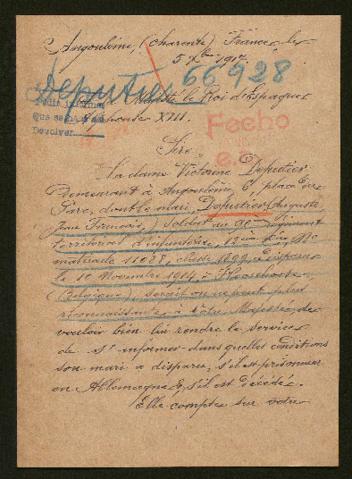 Angoulême, (Charente) France, le
5 Xbre 1917.
Deputier 66928
Majesté le Roi d'Espagne
Alphonse XIII.
Que se
Devolver
Fecho
Sire,
La dame Victorine Deputier
Demeurant à Angoulême, 6, place du
Parc, dont le mari, Deputier (Auguste
Jean François) soldat au 90e Régiment
territorial d'infanterie, 12ème Cie No
matricule 11028, classe 1899, disparu
le 10 Novembre 1914, à
(Belgique), serait on ne peut plus
reconnaissante, à Votre Majesté, de
vouloir bien lui rendre le service
de s'informer dans quelles conditions
son mari a disparu, s'il est prisonnier
en Allemagne, s'il est décédé.
Elle compte sur votre